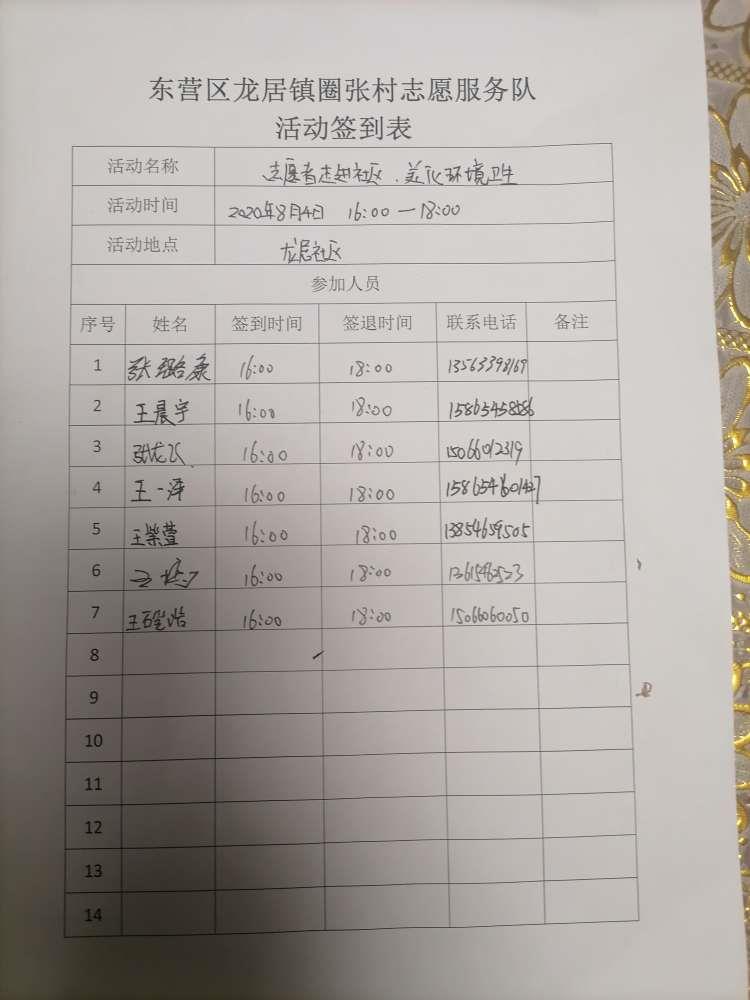 东营区龙居镇圈张村志愿服务队
活动签到表
活动名称 志愿者走进社区、美化环境卫生
活动时间 2020年8月4日 16:00—18:00
活动地点 龙居社区
参加人员
序号 姓名 签到时间 签退时间 联系电话 备注
1 张 康 16:00 18:00 13563398169
2 王晨宇 16:00 18:00
3 张龙飞 16:00 18:00 15066012319
4 王一泽 16:00 18:00
5 王荣萱 16:00 18:00 13854659505
6 16:00 18:00
7 王 浩 16:00 18:00 15066060050
8
9
10
11
12
13
14